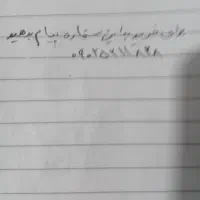 برای خرید به این شماره پیام بدهید
۰۹۰۲۵۲۱۱۸۲۸